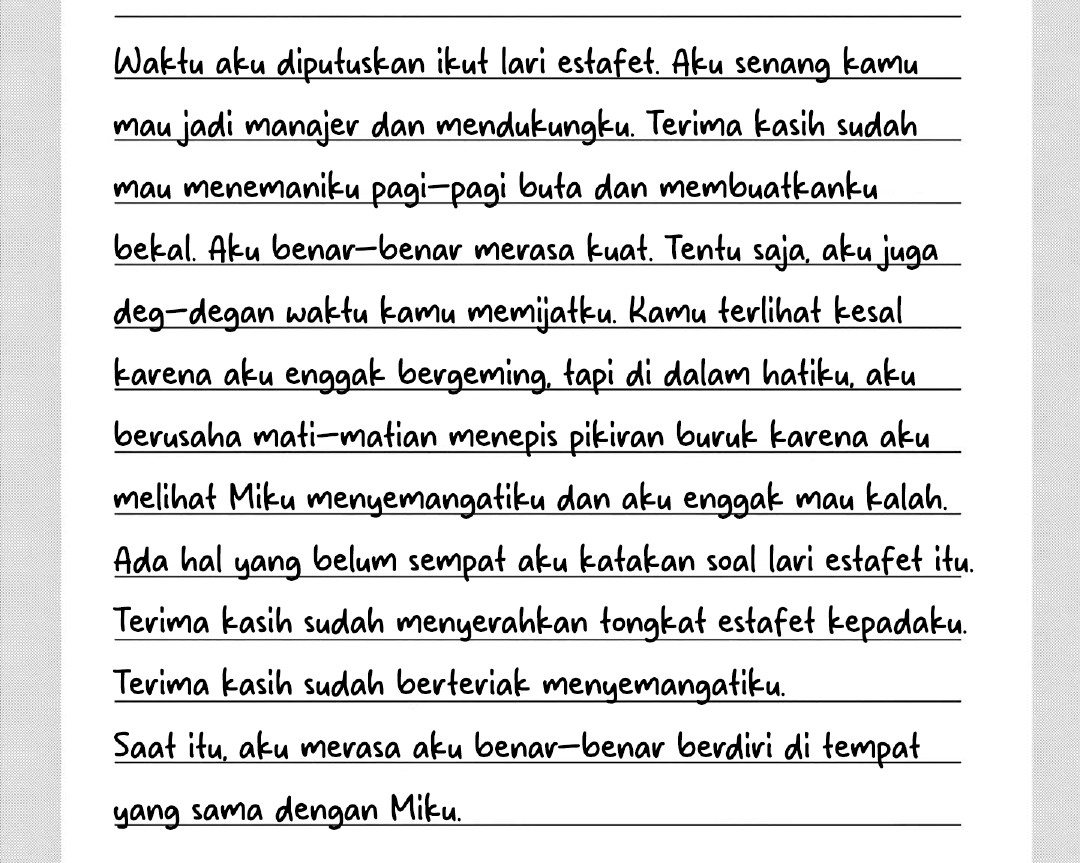 Waktu aku diputuskan ikut lari estafet. Aku senang kamu
mau jadi manajer dan mendukungku. Terima kasih sudah
mau menemaniku pagi-pagi buta dan membuatkanku
bekal. Aku benar-benar merasa kuat. Tentu saja, aku juga
deg-degan waktu kamu memijatku. Kamu terlihat kesal
karena aku enggak bergeming, tapi di dalam hatiku, aku
berusaha mati-matian menepis pikiran buruk karena aku
melihat Miku menyemangatiku dan aku enggak mau kalah.
Ada hal yang belum sempat aku katakan soal lari estafet itu.
Terima kasih sudah menyerahkan tongkat estafet kepadaku.
Terima kasih sudah berteriak menyemangatiku.
Saat itu, aku merasa aku benar-benar berdiri di tempat
yang sama dengan Miku.